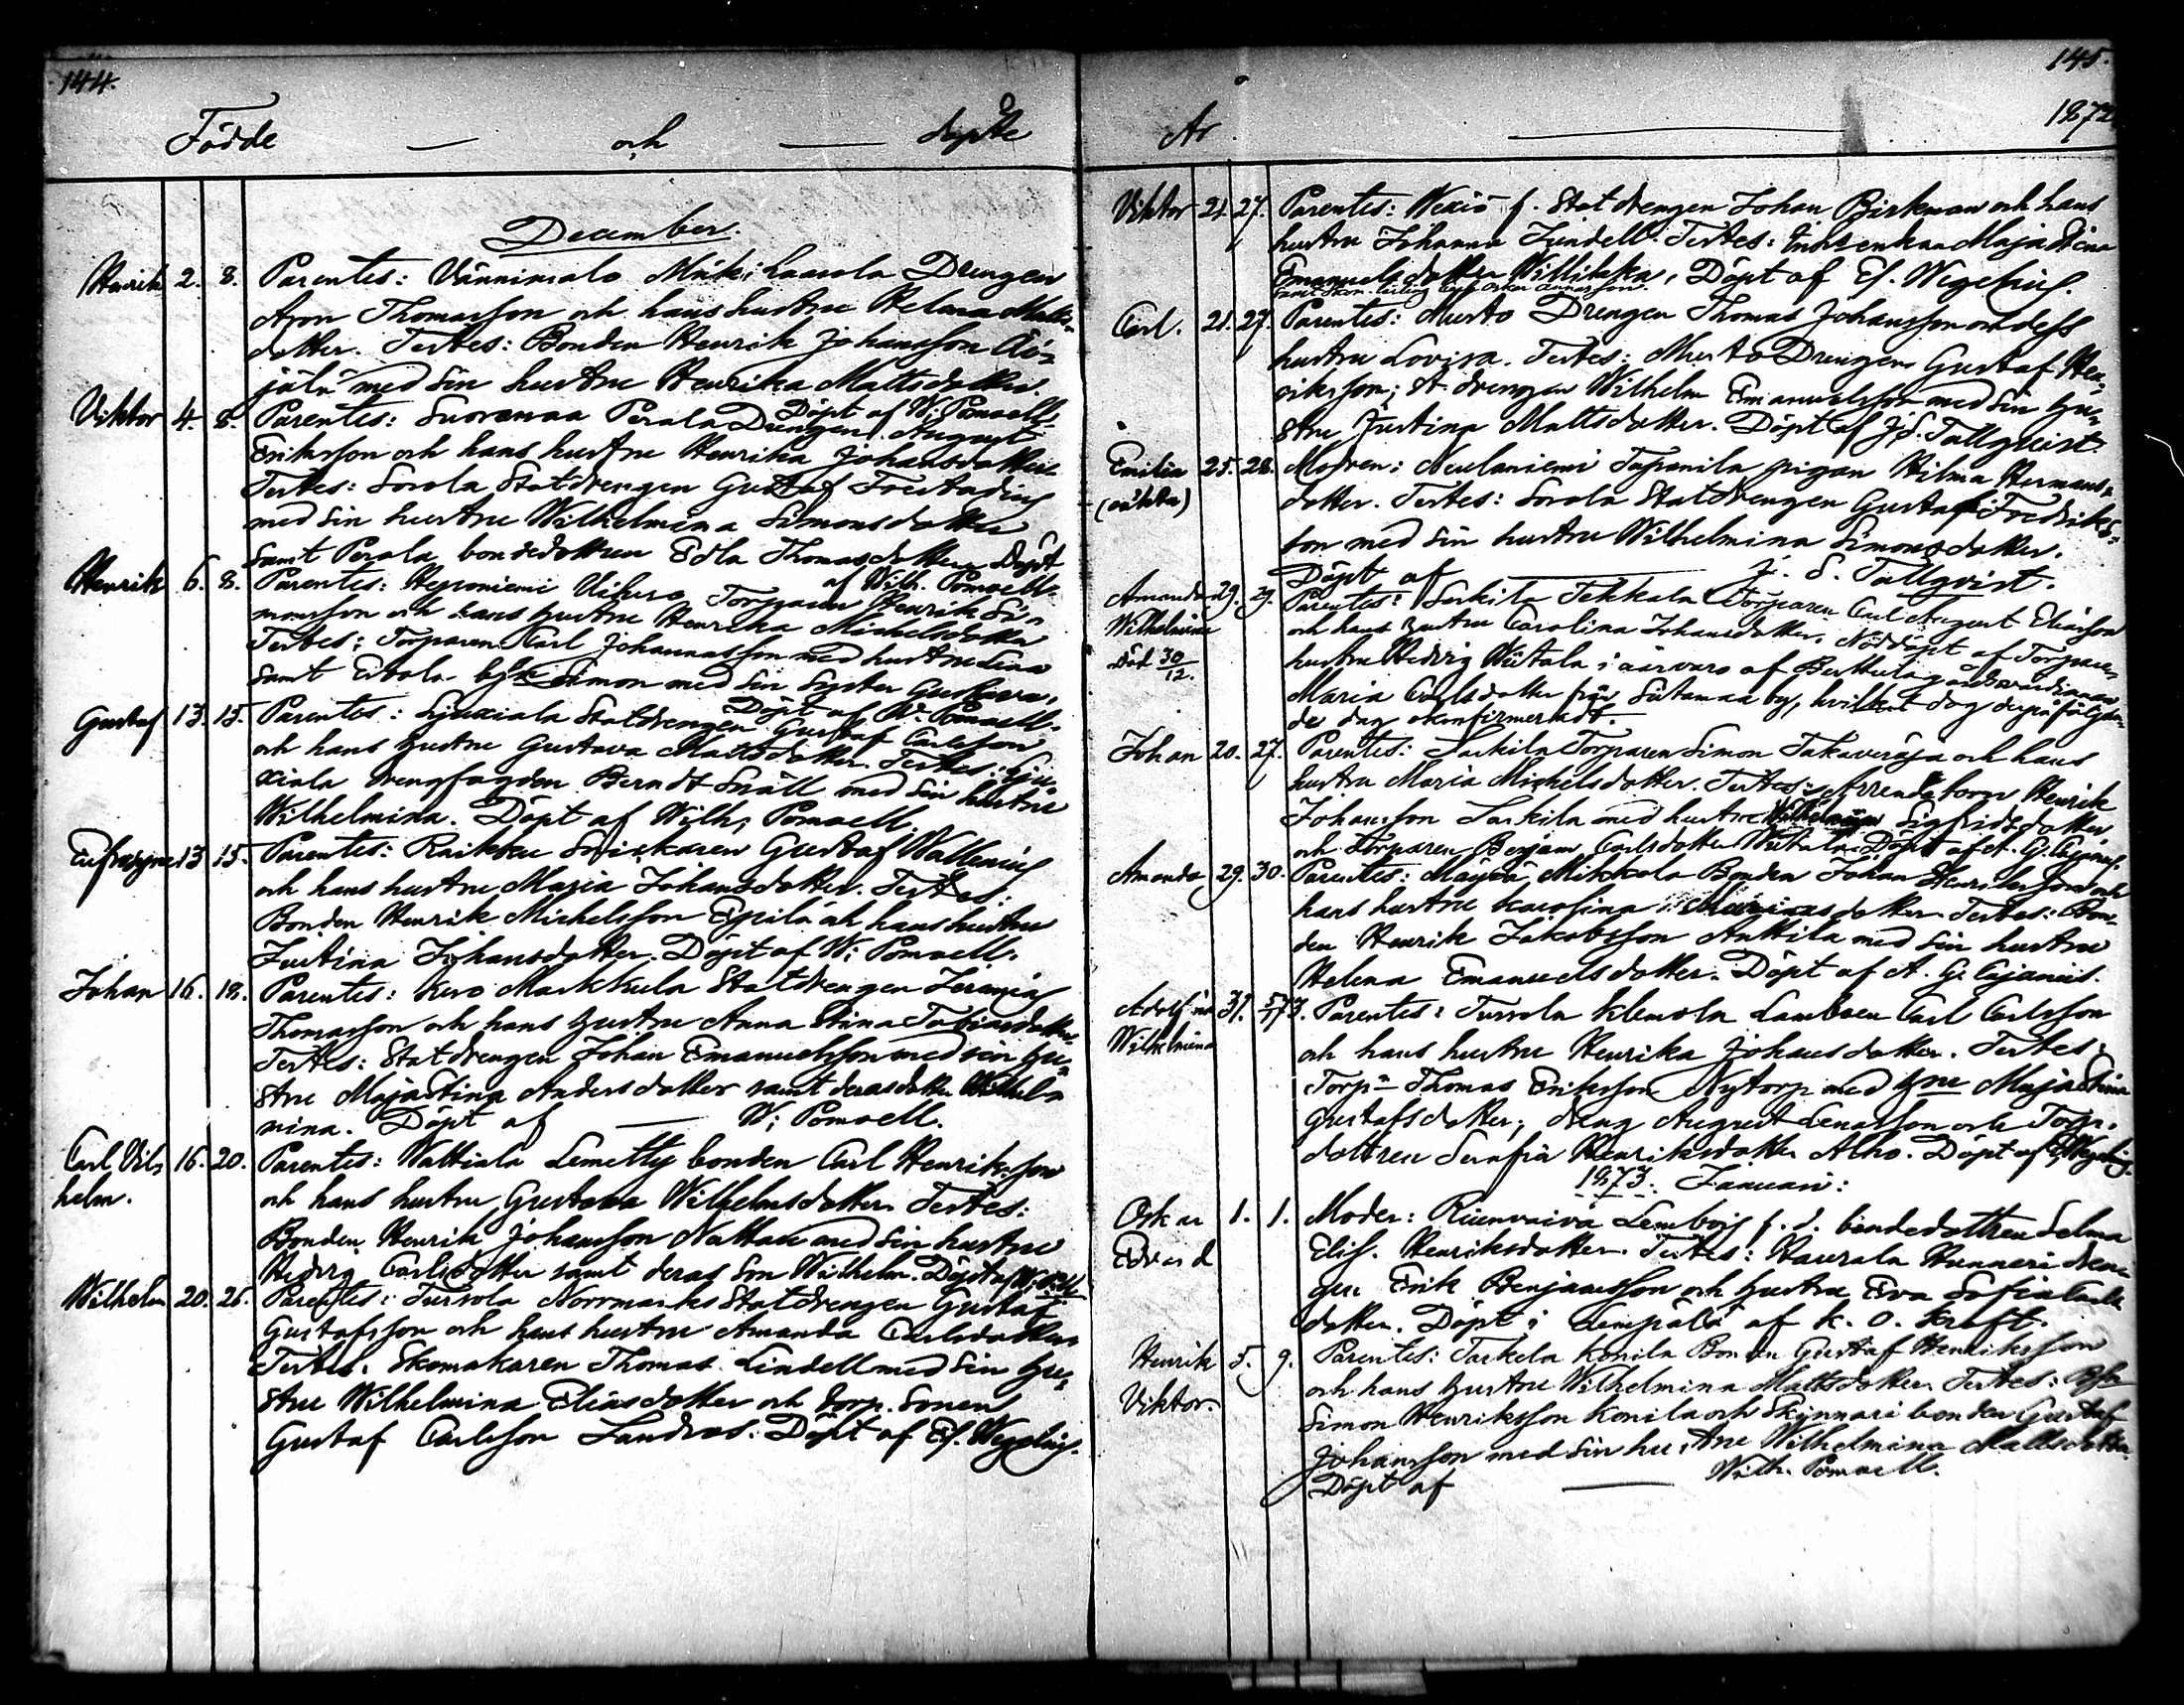 144.
Födde — och — döpte
December.
Henrik 2. 8. Parentes: Vännimalo Mäki Laurola Drengen
Aron Thomasson och hans hustru Helena Matts-
dotter. Testes: Bonden Henrik Johansson
med sin hustru Henrika Mattsdotter.
Döpt af W. Pomoell.
Viktor 4. 8. Parentes: Suoremaa Perala Drengen August
Eriksson och hans hustru Henrika Johansdotter
Testes: Sorola Statdrengen Gustaf
med sin hustru Wilhelmina Simonsdotter
samt Perala bondedottren Edla Thomasdotter Döpt
af Wilh. Pomoell.
Henrik 6. 8. Parentes: Heponiemi Torparen Henrik Si-
monsson och hans hustru Henrika Michelsdotter
Testes: Torparen Karl Johansson med hustru Lisa
samt Simon med sin Syster Gustava,
Döpt af W. Pomoell.
Gustaf 13. 15. Parentes: Ljuxiala Statdrengen Gustaf Carlsson
och hans hustru Gustava Mattsdotter. Testes: Lju-
xiala drengfogden Berndt Snäll med sin hustru
Wilhelmina. Döpt af Wilh. Pomoell.
Eufrosyne 13 15. Parentes: Raikku Snickaren Gustaf Wallenius
och hans hustru Maria Johansdotter. Testes:
Bonden Henrik Michelsson Epilä och hans hustru
Justina Johansdotter. Döpt af W: Pomoell.
Johan 16. 18. Parentes: Kuro Markkula Statdrengen Jeremias
Thomasson och hans hustru Anna Stina Tobiasdotter.
Testes: Statdrengen Johan Emanuelsson med sin hu-
stru Maja Stina Andersdotter samt deras dotter Wilhel-
mina. Döpt af — W: Pomoell.
Carl Vil- 16. 20. Parentes: Wattiala Lemetty bonden Carl Henriksson
helm. och hans hustru Gustava Wilhelmsdotter. Testes:
Bonden Henrik Johansson Nattari med sin hustru
Hedvig Carlsdotter samt deras son Wilhelm. Döpt af
Wilhelm 20. 26. Parentes: Tursola Norrmarks Statdrengen Gustaf
Gustafsson och hans hustru Amanda Carlsdotter
Testes. Skomakaren Thomas Lindell med sin hu-
stru Wilhelmina Eliasdotter och torp. sonen
Gustaf Carlsson Landros. Döpt af Ef. Wegelius.
145.
År — 1872
Viktor 21. 27. Parentes: Wexiö f. Statdrengen Johan Birkman och hans
hustru Johanna Lundell. Testes: Enkan Maja Stina
Emanuelsdotter, Döpt af Ef. Wegelius.
Carl. 21. 27. Parentes: Musto Drengen Thomas Johansson och dess
hustru Lovisa. Testes: Musto Drengen Gustaf Hen-
riksson; St. drengen Wilhelm Emanuelsson med sin hu-
stru Justina Mattsdotter. Döpt af J. S. Tallqvist.
Emilia 25. 28. Modren: Neulaniemi Tapanila pigan Hilma Hermans-
(oäkta) dotter. Testes: Sorola Statdrengen Gustaf Fredriks-
son med sin hustru Wilhelmina Simonsdotter.
Döpt af — J. S. Tallqvist.
Amanda 29. 29. Parentes: Sarkila Tekkala Torparen Carl August Eliasson
Wilhelmina och hans hustru Carolina Johansdotter, Nöddöpt af Torpare
Död 30/12. hustru Hedvig Wiitala i närvaro af
Maria Carlsdotter från by, hvilket dop derpåföljan-
de dag konfirmerades.
Johan 20. 27. Parentes: Sarkila Torparen Simon Takaveräjä och hans
hustru Maria Michelsdotter. Testes: Arrendatorn Henrik
Johansson Sarkila med hustru Wilhelmina Sigfridsdotter
och Torparen Benjam. Carlsdotter Wiitala. Döpt af A. G. Cajanus.
Amanda 29. 30. Parentes: Mäyrä Mikkola Bonden Johan Henriksson och
hans hustru Karolina dotter. Testes: Bon-
den Henrik Jakobsson Anttila med sin hustru
Helena Emanuelsdotter. Döpt af A. G. Cajanus.
Adolfina 31. 5/1 73. Parentes: Tursola Klemola Landboen Carl Carlsson
Wilhelmina och hans hustru Henrika Johansdotter. Testes:
Torp. Thomas Eriksson Nytorp med hru Maja Stina
Gustafsdotter, dreng August Lenasson och Torp.
dottren Serafia Henriksdotter Alho. Döpt af Ef. Wegelius.
1873. Januari:
Oskar 1. 1. Moder: Lembois f. d. bondedottren Selma
Edvard Elis. Henriksdotter. Testes: Haurala Hunnari dren-
gen Erik Benjamsson och hustru Eva Sofia Carls
dotter. Döpt i Lempälä af K. O. Kraft.
Henrik 5. 9. Parentes: Tarkela Konila Bonden Gustaf Henriksson
Viktor. och hans hustru Wilhelmina Mattsdotter. Testes:
Simon Henriksson Konila och Skinnari bonden Gustaf
Johansson med sin hustru Wilhelmina Mattsdotter.
Döpt af — Wilh. Pomoell.